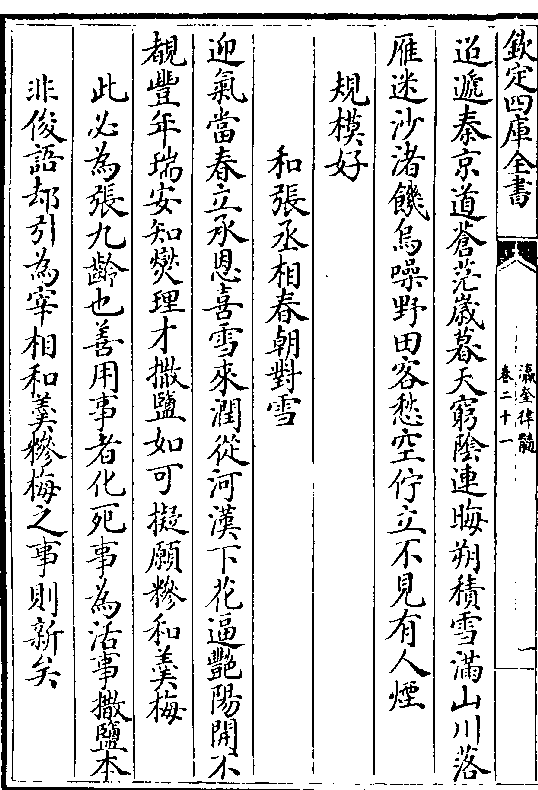 欽定四庫全書
瀛奎律髓
卷二十一
一
迢遞秦京道蒼茫歲暮天窮陰連晦朔積雪滿山川落
雁迷沙渚饑烏噪野田客愁空佇立不見有人煙
規模好
和張丞相春朝對雪
迎氣當春立承恩喜雪來潤從河漢下花逼艷陽開不
覩豐年瑞安知燮理才撒鹽如可擬願糝和羹梅
此必為張九齡也善用事者化死事為活事撒鹽本
非俊語却引為宰相和羹糝梅之事則新矣